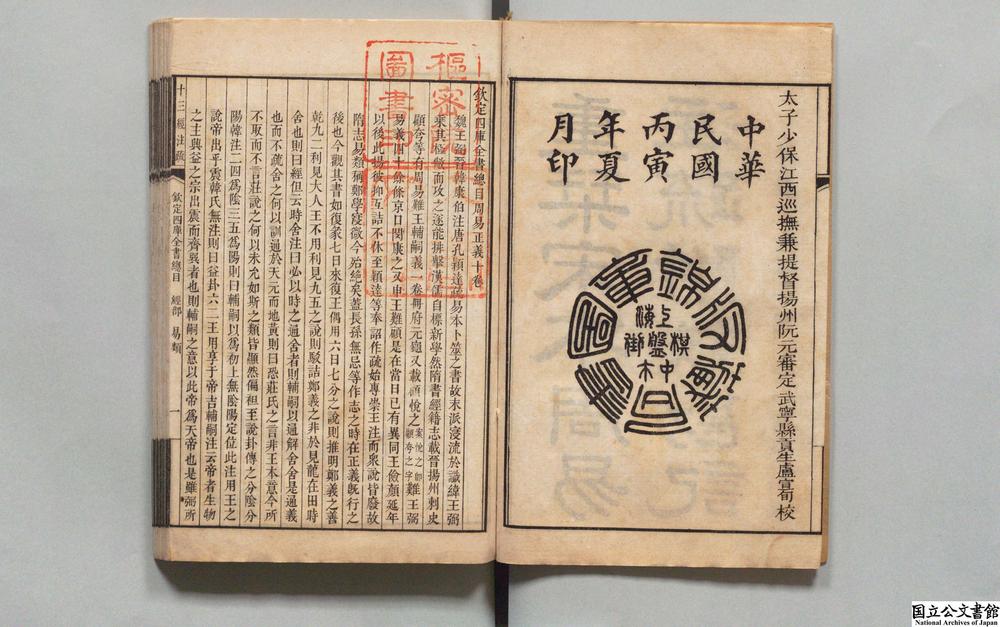 太子少保江西巡撫兼提督揚州阮元審定 武寧縣貢生盧宣旬校
中華
民國
丙寅
年夏
月印
上海
棋盤街
中
欽定四庫全書總目周易正義十卷
魏王弼晉韓康伯注唐孔穎達疏易本卜筮之書故末派寖流於讖緯王弼
乘其極敝而攻之遂能排擊漢儒自標新學然隋書經籍志載晉揚州刺史
顧夸等有周易難王輔嗣義一卷冊府元龜又載顧悅之案悅之即顧夸之字難王弼
易義四十餘條京口閔康之又申王難顧是在當日已有異同王儉顏延年
以後此揚彼抑互詰不休至穎達等奉詔作疏始專崇王注而衆說皆廢故
隋志易類稱鄭學寖微今殆絕矣蓋長孫無忌等作志之時在正義既行之
後也今觀其書如復彖七日來復王偶用六日七分之說則推明鄭義之善
乾九二利見大人王不用利見九五之說則駁詰鄭義之非於見龍在田時
舍也則曰經但云時舍注曰必以時之通舍者則輔嗣以通解舍舍是通義
也而不疏舍之何以訓通於天元而地黃則曰恐莊氏之言非王本意今所
不取而不言莊說之何以未允如斯之類皆顯然偏袒至說卦傳之分陰分
陽韓注二四爲陰三五爲陽則曰輔嗣以爲初上無陰陽定位此注用王之
說帝出乎震韓氏無注則曰益卦六二王用享于帝吉輔嗣注云帝者生物
之主興益之宗出震而齊巽者也則輔嗣之意以此帝爲天帝也是雖弼所
十三經注疏
欽定四庫全書總目 經部 易類
一
樞密院
圖書印
国立公文書館
National Archives of Japan